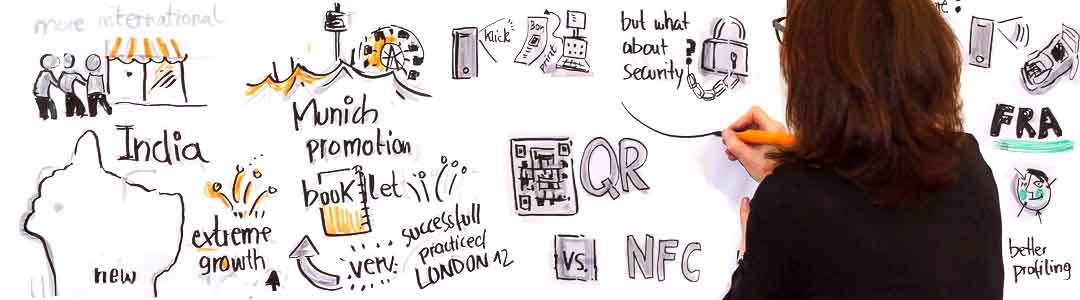 more international
India
new
extreme
growth
Munich
promotion
booklet
very
successfull
practiced
LONDON 12
Klick
Bon
but what
about
security?
QR
VS.
NFC
?
FRA
better
profiling